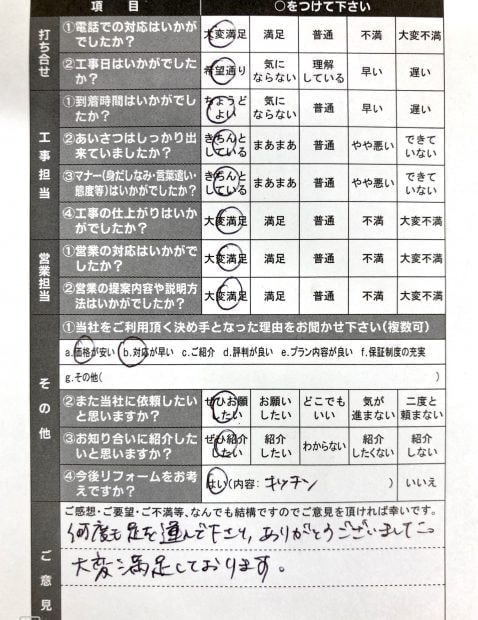 項目 ○をつけて下さい
打ち合せ
①電話での対応はいかがでしたか? 大変満足 満足 普通 不満 大変不満
②工事日はいかがでしたか? 希望通り 気にならない 理解している 早い 遅い
工事担当
①到着時間はいかがでしたか? ちょうどよい 気にならない 普通 早い 遅い
②あいさつはしっかり出来ていましたか? きちんとしている まあまあ 普通 やや悪い できていない
③マナー(身だしなみ・言葉遣い・態度等)はいかがでしたか? きちんとしている まあまあ 普通 やや悪い できていない
④工事の仕上がりはいかがでしたか? 大変満足 満足 普通 不満 大変不満
営業担当
①営業の対応はいかがでしたか? 大変満足 満足 普通 不満 大変不満
②営業の提案内容や説明方法はいかがでしたか? 大変満足 満足 普通 不満 大変不満
その他
①当社をご利用頂く決め手となった理由をお聞かせ下さい(複数可)
a.価格が安い b.対応が早い c.ご紹介 d.評判が良い e.プラン内容が良い f.保証制度の充実
g.その他( )
②また当社に依頼したいと思いますか? ぜひお願いしたい お願いしたい どこでもいい 気が進まない 二度と頼まない
③お知り合いに紹介したいと思いますか? ぜひ紹介したい 紹介したい わからない 紹介したくない 紹介しない
④今後リフォームをお考えですか? はい(内容: キッチン ) いいえ
ご意見
ご感想・ご要望・ご不満等、なんでも結構ですのでご意見を頂ければ幸いです。
何度も足を運んで下さり、ありがとうございました。
大変満足しております。